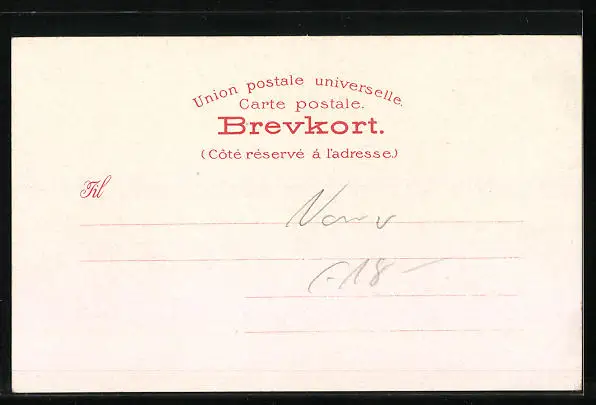 Union postale universelle.
Carte postale.
Brevkort.
(Côté réservé á l'adresse.)
Til
18-